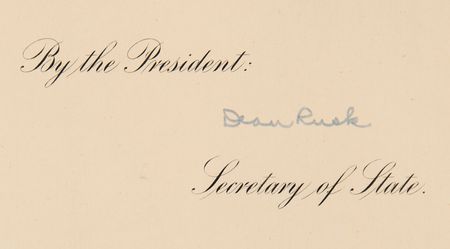 By the President:
Dean Rusk
Secretary of State.